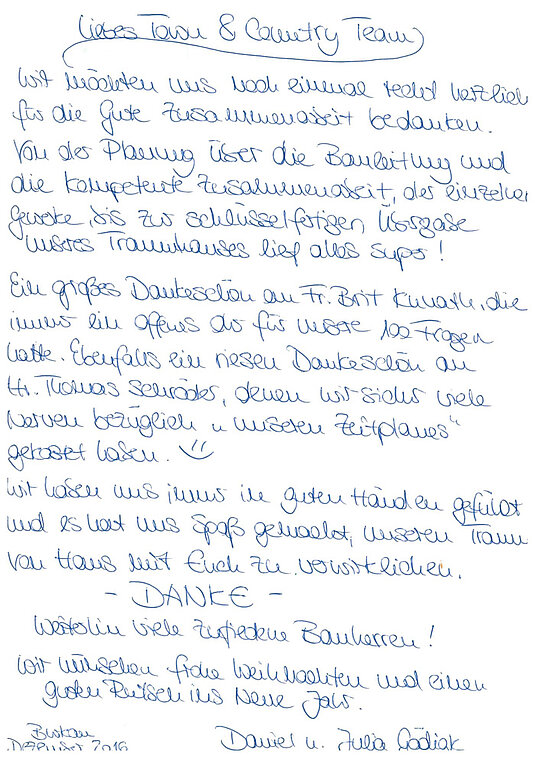 Liebes Town & Country Team
wir möchten uns noch einmal recht herzlich
für die gute Zusammenarbeit bedanken.
Von der Planung über die Bauleitung und
die kompetente Zusammenarbeit, der einzelnen
Gewerke, bis zur schlüsselfertigen Übergabe
unseres Traumhauses lief alles super!
Ein großes Dankeschön an Fr. Brit Kunath, die
immer ein offenes Ohr für unsere 100 Fragen
hatte. Ebenfalls ein riesen Dankeschön an
Hr. Thomas Schröder, denen wir sicher viele
Nerven bezüglich "unseren Zeitplanes"
gekostet haben.
Wir haben uns immer in guten Händen gefühlt
und es hat uns Spaß gemacht, unseren Traum
von Haus mit Euch zu verwirklichen.
- DANKE -
Weiterhin viele zufriedene Bauherren!
Wir wünschen frohe Weihnachten und einen
guten Rutsch ins Neue Jahr.
Dezember 2016
Daniel u. Julia